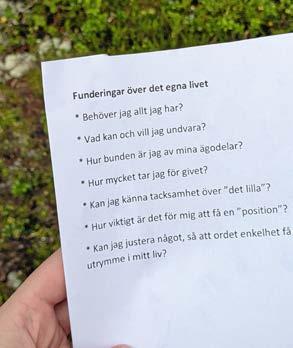 Funderingar över det egna livet
* Behöver jag allt jag har?
* Vad kan och vill jag undvara?
* Hur bunden är jag av mina ägodelar?
* Hur mycket tar jag för givet?
* Kan jag känna tacksamhet över ”det lilla”?
* Hur viktigt är det för mig att få en ”position”?
* Kan jag justera något, så att ordet enkelhet få
utrymme i mitt liv?